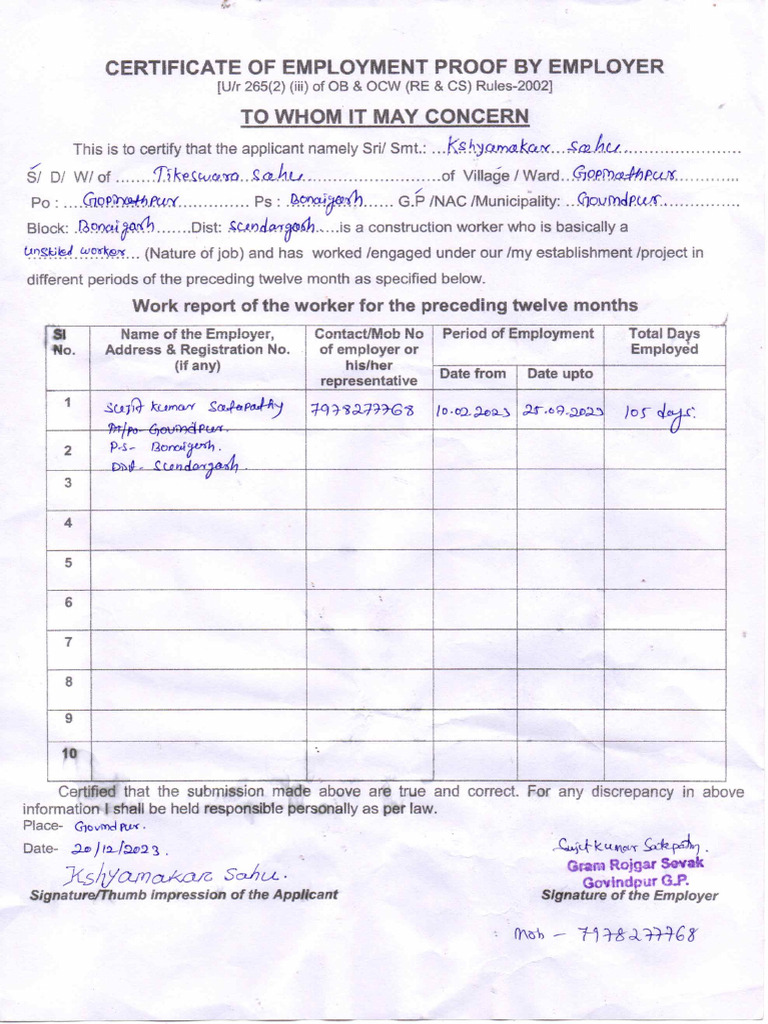 CERTIFICATE OF EMPLOYMENT PROOF BY EMPLOYER
[U/r 265(2) (iii) of OB & OCW (RE & CS) Rules-2002]
TO WHOM IT MAY CONCERN
This is to certify that the applicant namely Sri/ Smt.: ...Kshyamakar Sahu
S/ D/ W/ of ......Tikeswara Sahu......of Village / Ward..Gopinathpur
Po : ....Gopinathpur............ Ps : Bonaigarh...... G.P /NAC /Municipality: ..Govindpur
Block: .Bonaigarh.......Dist: Sundargarh.....is a construction worker who is basically a
unskiled worker... (Nature of job) and has worked /engaged under our /my establishment /project in
different periods of the preceding twelve month as specified below.
Work report of the worker for the preceding twelve months
Sl No. Name of the Employer, Address & Registration No. (if any) Contact/Mob No of employer or his/her representative Period of Employment Total Days Employed
Date from Date upto
1 Sujit Kumar Satapathy 7978277768 10.02.2023 25.09.2023 105 days.
At/po- Govindpur.
2 P.S- Bonaigarh.
Dist- Sundargarh.
3
4
5
6
7
8
9
10
Certified that the submission made above are true and correct. For any discrepancy in above
information I shall be held responsible personally as per law.
Place- Govindpur.
Date- 20/12/2023.
Sujit Kumar Satapathy.
Gram Rojgar Sevak
Govindpur G.P.
Kshyamakar Sahu.
Signature/Thumb impression of the Applicant
Signature of the Employer
Mob - 7978277768